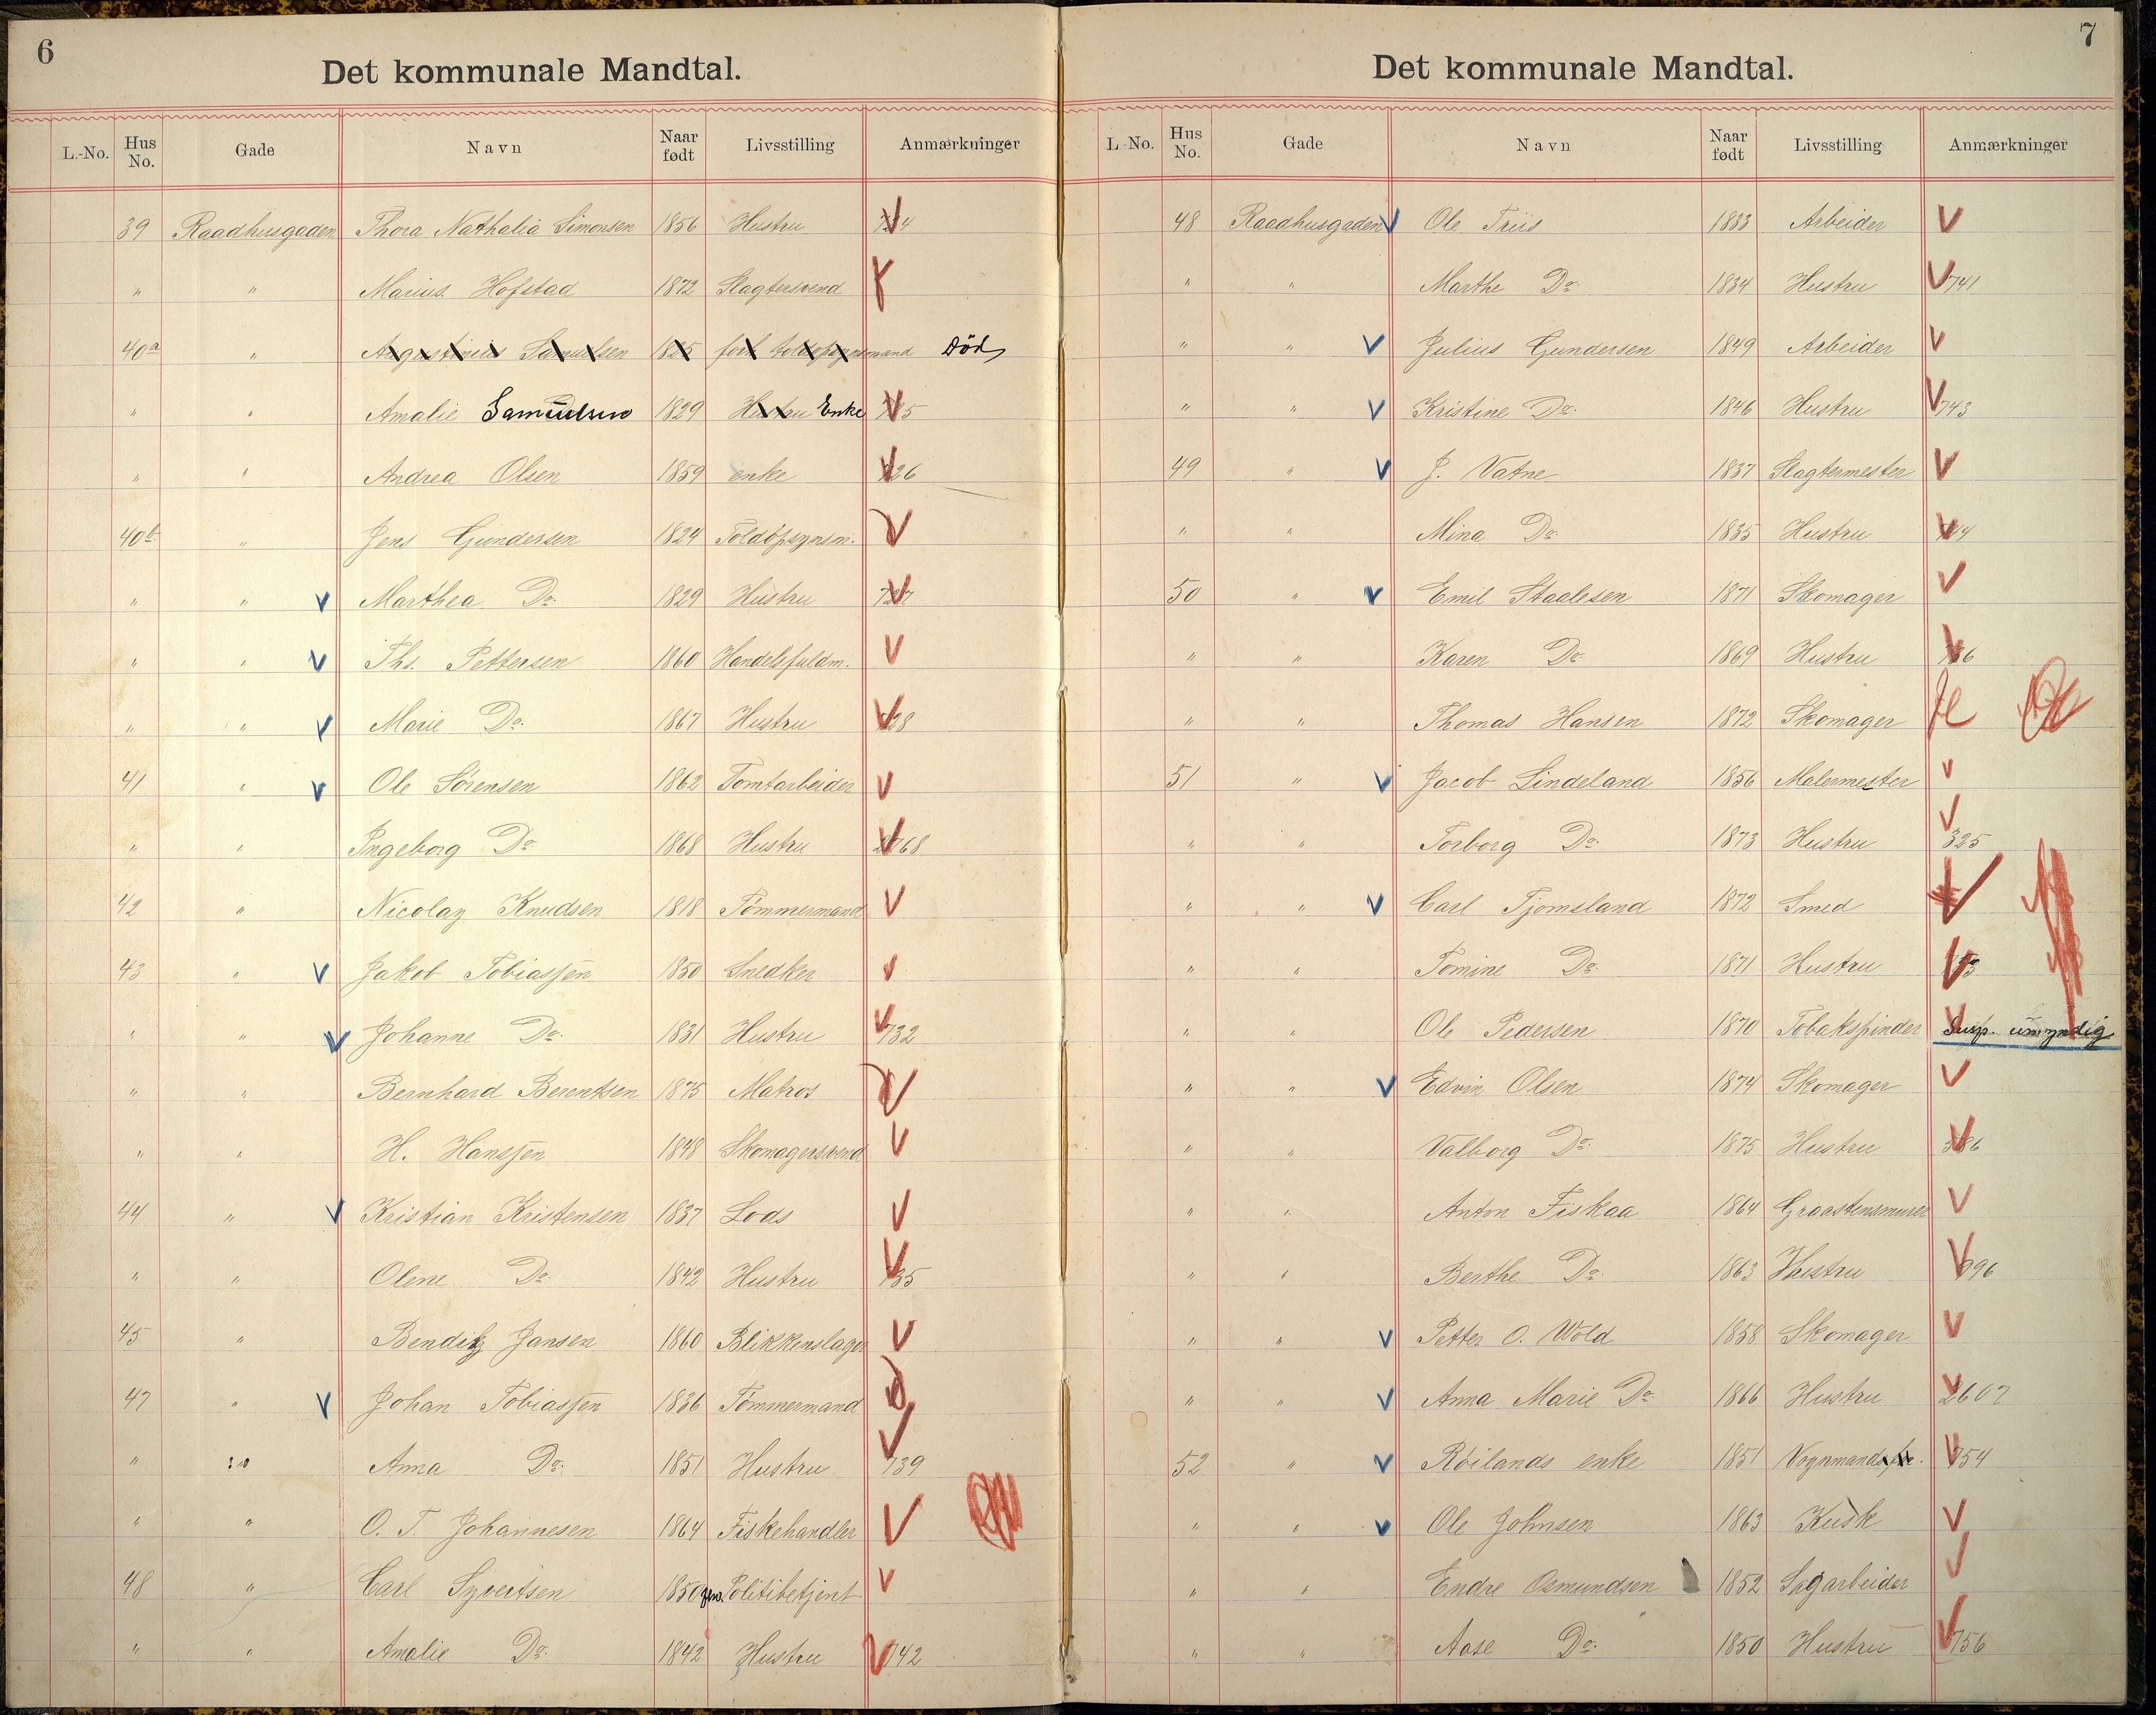 6
Det kommunale Mandtal.
L.-No. Hus No. Gade Navn Naar født Livsstilling Anmærkninger
39 Raadhusgaden Thora Nathalia Simonsen 1856 Hustru
" " Marius Hofstad 1872 Slagtersvend
40a " Augustinius Samuelsen 1825 forh. toldopsynsmand Död
" " Amalie Samuelsen 1829 Hustru Enke
" " Andrea Olsen 1859 enke 726
40b " Jens Gundersen 1824 Toldopsynsm. V
" " V Marthea Do. 1829 Hustru 727
" " V Ths. Pettersen 1860 Handelsfuldm. V
" " V Marie Do. 1867 Hustru 728
41 " V Ole Sørensen 1862 Tomtarbeider V
" " Ingeborg Do. 1868 Hustru
42 " Nicolay Knudsen 1818 Tømmermand V
43 " V Jakob Tobiassen 1850 Snedker V
" " V Johanne Do. 1831 Hustru V 732
" " Bernhard Berentsen 1875 Matros V
" " H. Hanssen 1848 Skomagersvend V
44 " V Kristian Kristensen 1837 Lods V
" " Olene Do. 1842 Hustru V 735
45 " Benditz Jansen 1860 Blikkenslager V
47 " V Johan Tobiassen 1836 Tømmermand
" " Anna Do. 1851 Hustru V 739
" " O. T. Johannesen 1864 Fiskehandler V
48 " Carl Syvertsen 1850 Politibetjent V
" " Amalie Do. 1842 Hustru V 742
7
Det kommunale Mandtal.
L.-No. Hus No. Gade Navn Naar født Livsstilling Anmærkninger
48 Raadhusgaden V Ole Friis 1833 Arbeider V
" " Marthe Do. 1834 Hustru V 741
" " V Julius Gundersen 1849 Arbeider V
" " V Kristine Do. 1846 Hustru V 743
49 " V J. Vatne 1837 Slagtermester V
" " Mina Do. 1835 Hustru V 744
50 " V Emil Staalesen 1871 Skomager V
" " Karen Do. 1869 Hustru V
" " Thomas Hansen 1872 Skomager
51 " V Jacob Lindeland 1856 Malermester V
" " Torborg Do. 1873 Hustru V 325
" " V Carl Tjomsland 1872 Smed V
" " Tomine Do. 1871 Hustru V
" " Ole Pedersen 1870 Tobakspinder V Susp. umyndig
" " V Edvin Olsen 1874 Skomager V
" " Valborg Do. 1875 Hustru V
" " Anton Fiskaa 1864 Graastensmurer V
" " Berthe Do. 1863 Hustru V
" " V Petter O. Wold 1858 Skomager V
" " V Anna Marie Do. 1866 Hustru V 2607
52 " V Røilands enke 1851 Vognmands V 754
" " V Ole Johnsen 1863 Kusk V
" " Endre Osmundsen 1852 Sagarbeider V
" " Aase Do. 1850 Hustru V 756